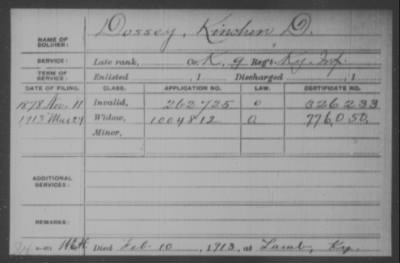 NAME OF SOLDIER: Dossey, Kinchen D.
SERVICE: Late rank, Co. K, 9 Reg't Ky. Inf.
TERM OF SERVICE: Enlisted , 1 Discharged , 1
DATE OF FILING. CLASS. APPLICATION NO. LAW. CERTIFICATE NO.
1878 Nov. 11 Invalid, 262725 326233
1913 Mar 24 Widow, 1004812 776,050.
Minor,
ADDITIONAL SERVICES:
REMARKS:
Died Feb. 10, 1913, at Lamb, Ky.